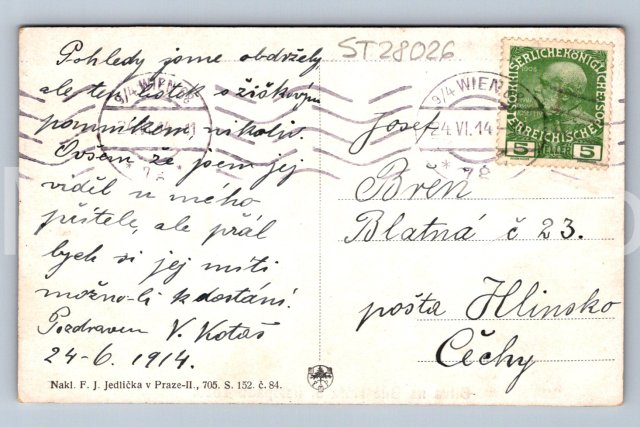 Pohledy jsme obdrželi,
ale ten lístek s žižkovým
pomníkem nikoliv.
Ovšem že jsem jej
viděl u mého
přítele, ale přál
bych si jej míti
možno-li k dostání.
Pozdravem V. Kotas
24-6. 1914.
Nakl. F. J. Jedlička v Praze-II., 705. S. 152. č. 84.
ST28026
9/4 WIEN
9/4 WIEN
24.VI.14
* 78
* 78
1908
5 5
Josef
Břen
Blatná č 23.
pošta Hlinsko
Čechy